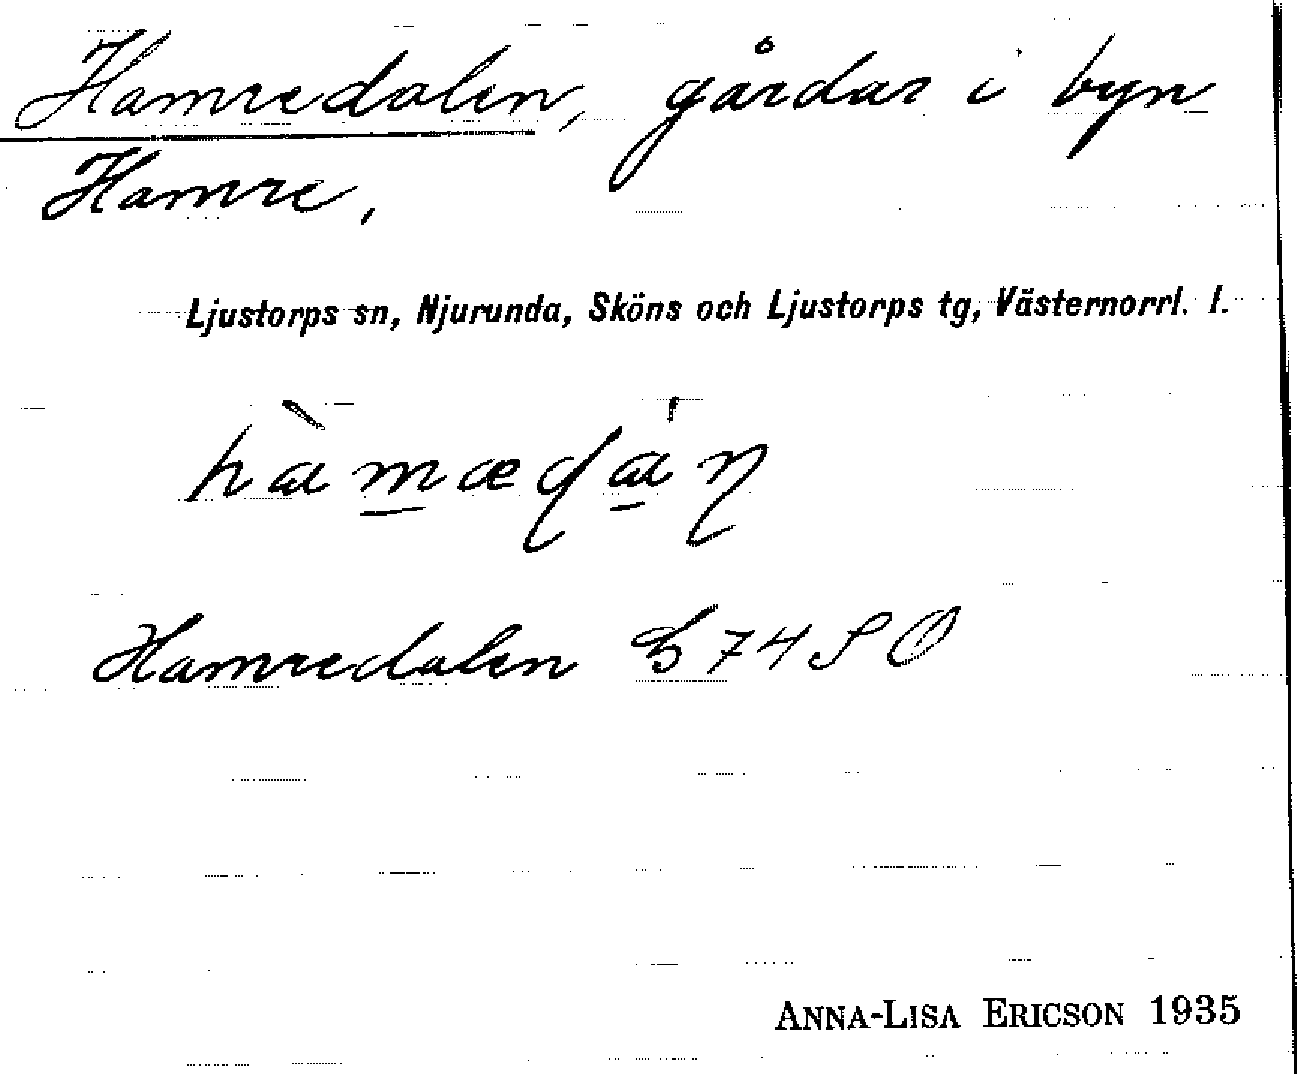 Hamredalen, gårdar i byn
Hamre,
Ljustorps sn, Njurunda, Sköns och Ljustorps tg, Västernorrl. l.
Hamredalen 74 SO
ANNA-LISA ERICSON 1935